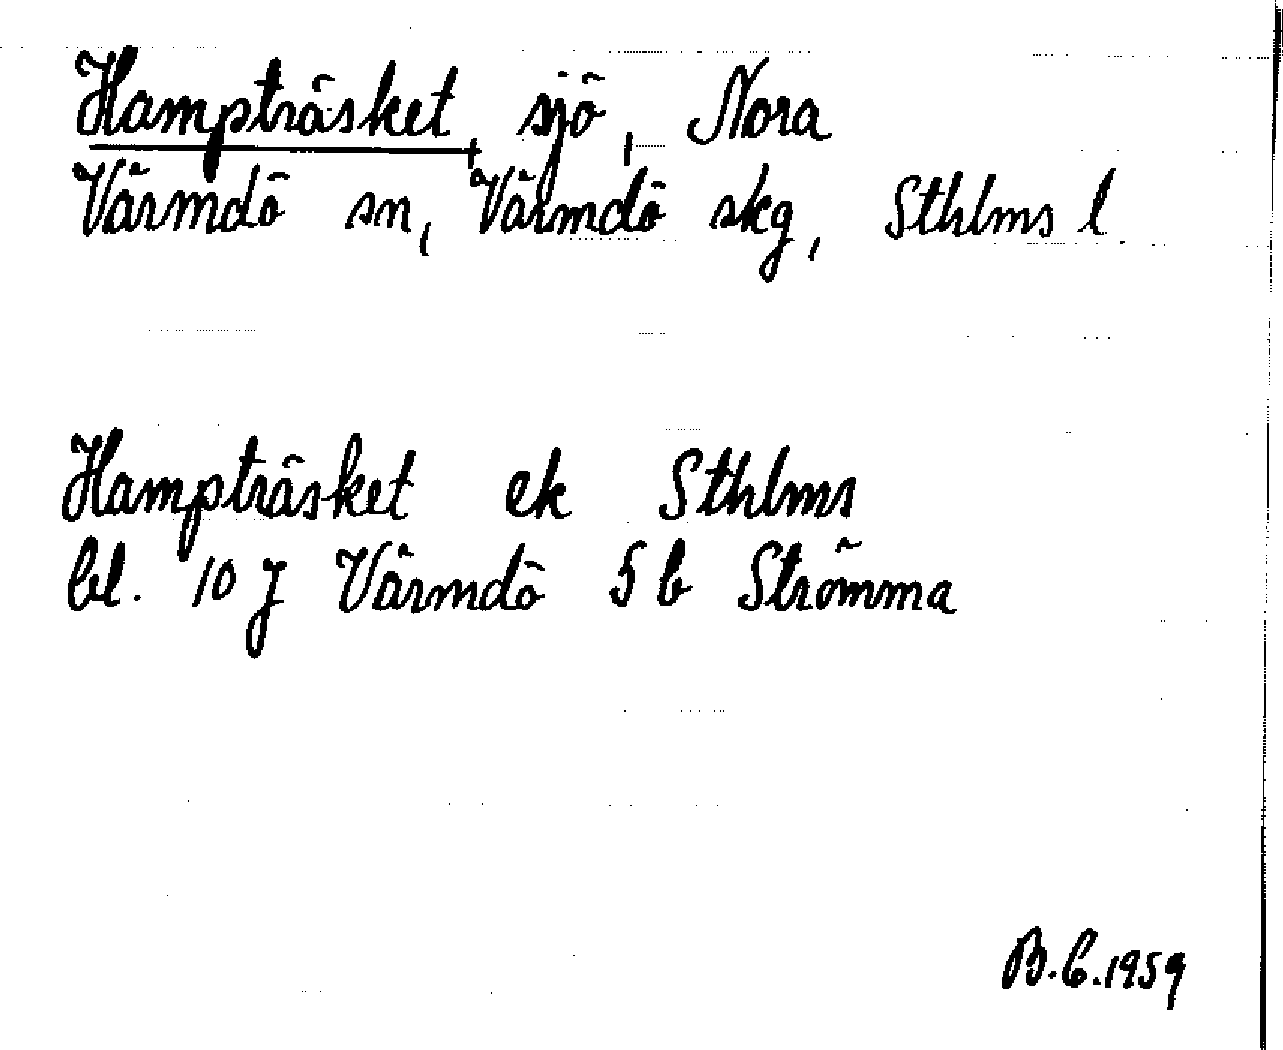 Hampträsket, sjö, Nora
Värmdö sn, Värmdö skg, Sthlms l
Hampträsket ek Sthlms
bl. 10 J Värmdö 5 b Strömma
B.C.1959